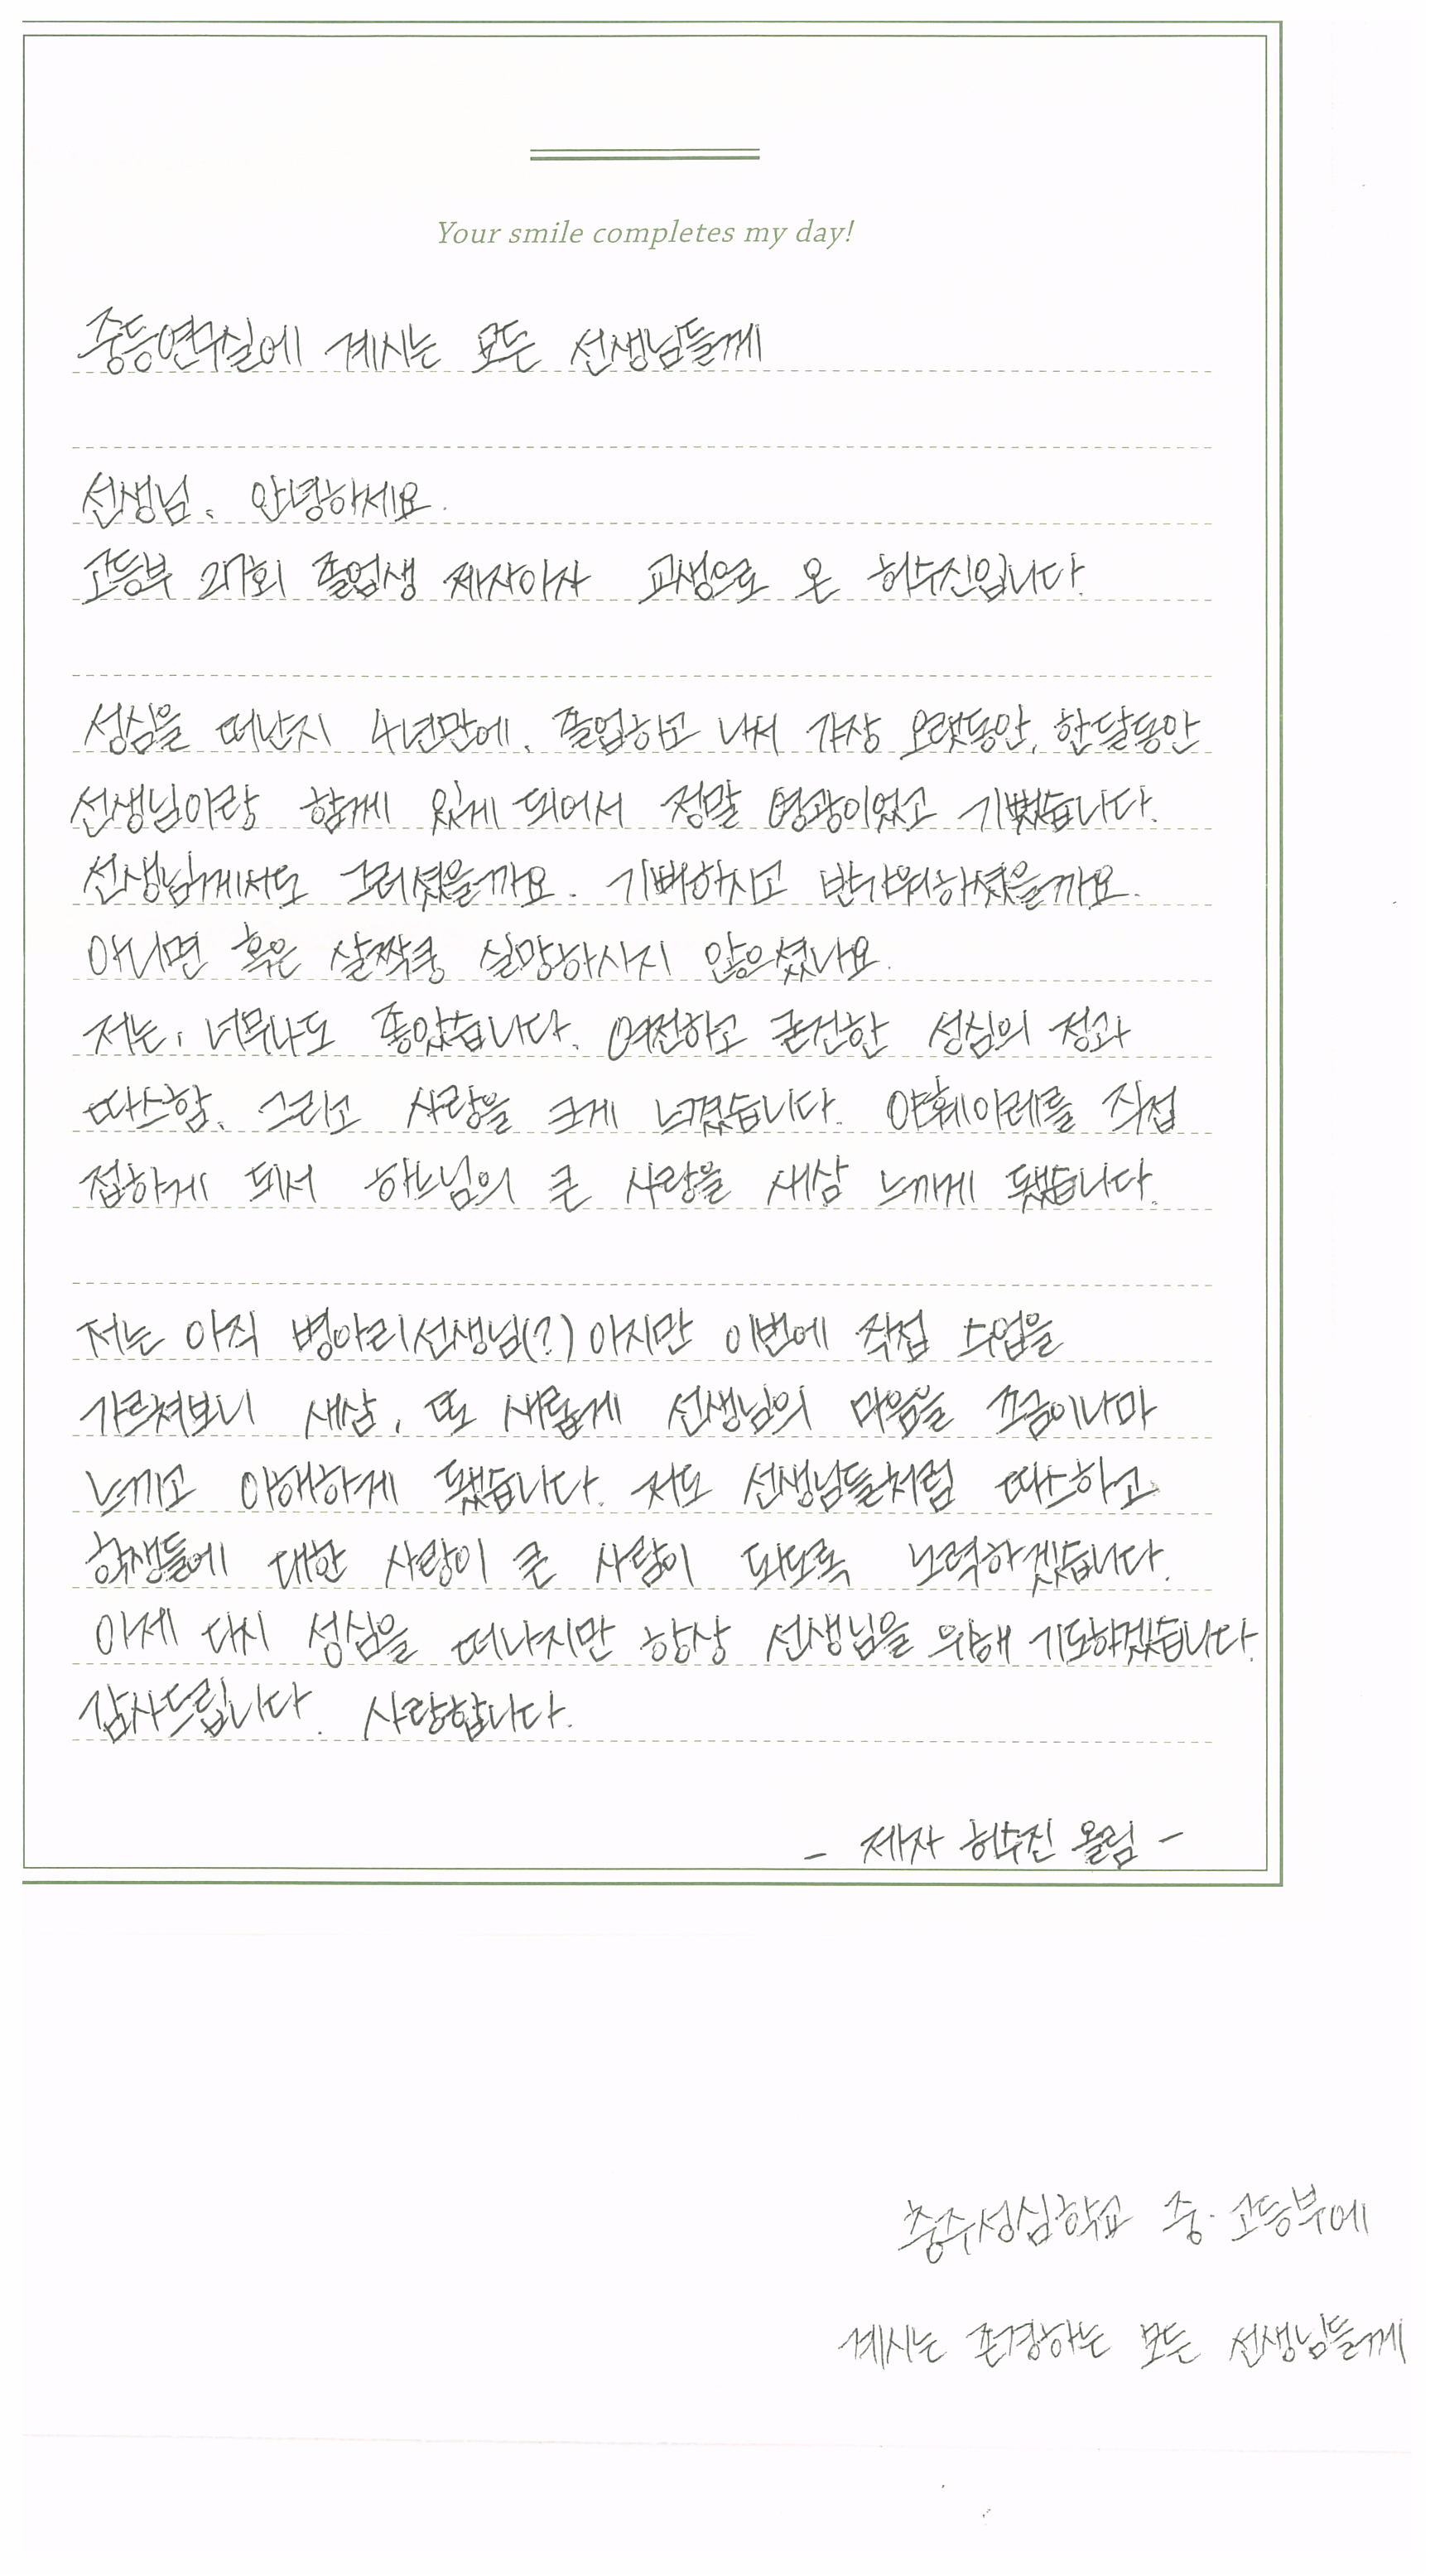 Your smile completes my day!
중등연구실에 계시는 모든 선생님들께
선생님, 안녕하세요.
고등부 27회 졸업생 제자이자 교생으로 온 허수진입니다.
성심을 떠난지 4년만에, 졸업하고 나서 가장 오랫동안, 한달동안
선생님이랑 함께 있게 되어서 정말 영광이었고 기뻤습니다.
선생님께서도 그러셨을까요. 기뻐하시고 반가워하셨을까요.
아니면 혹은 살짝쿵 실망하시지 않으셨나요.
저는, 너무나도 좋았습니다. 여전하고 굳건한 성심의 정과
따스함, 그리고 사랑을 크게 느꼈습니다. 야훼이레를 직접
접하게 되서 하느님의 큰 사랑을 새삼 느끼게 됐습니다.
저는 아직 병아리선생님(?)이지만 이번에 직접 수업을
가르쳐보니 새삼, 또 새롭게 선생님의 마음을 조금이나마
느끼고 이해하게 됐습니다. 저도 선생님들처럼 따스하고
학생들에 대한 사랑이 큰 사람이 되도록 노력하겠습니다.
이제 다시 성심을 떠나지만 항상 선생님을 위해 기도하겠습니다.
감사드립니다. 사랑합니다.
- 제자 허수진 올림 -
충주성심학교 중·고등부에
계시는 존경하는 모든 선생님들께